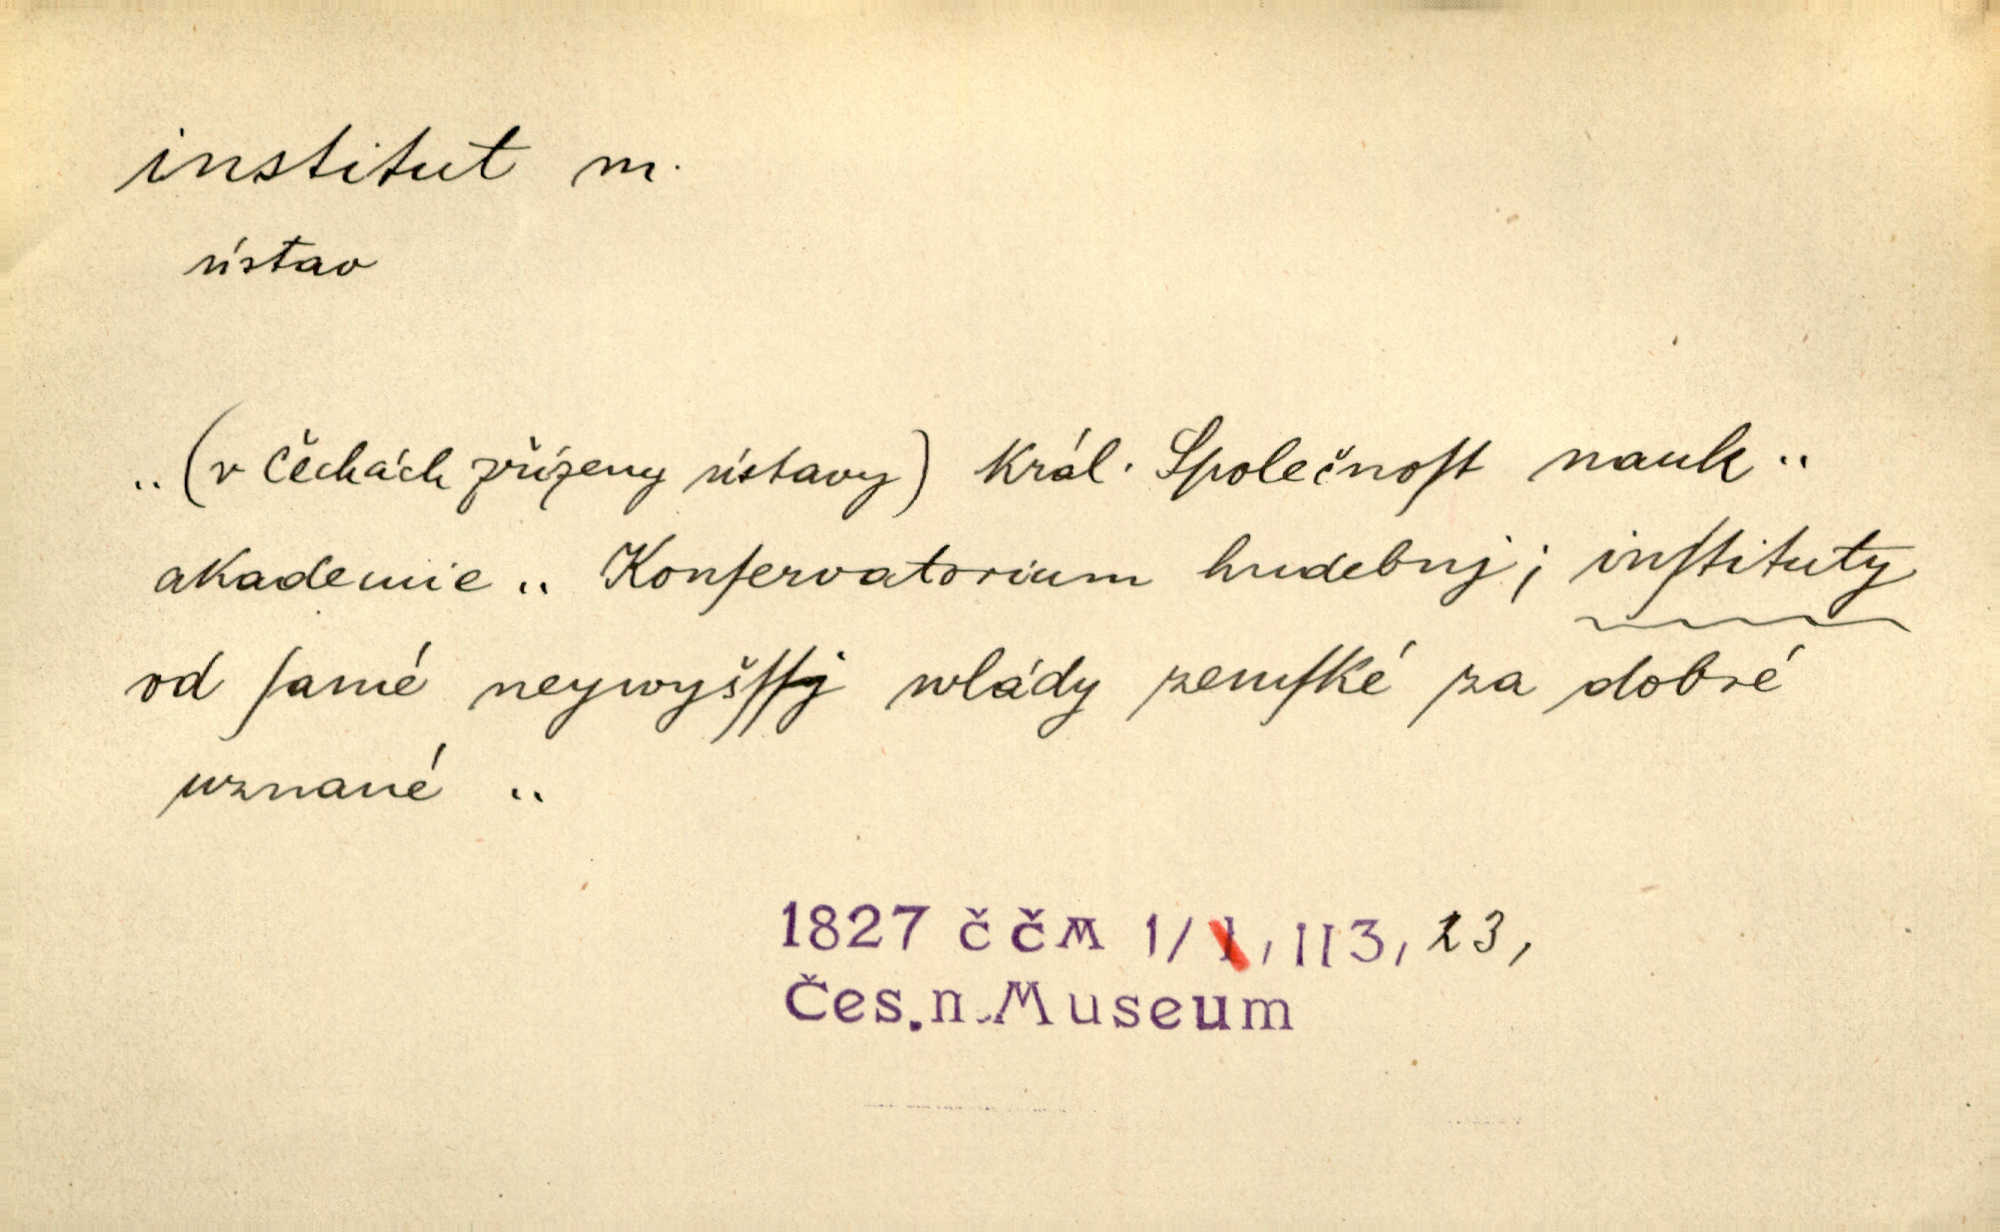 institut m.
ústav
.. (v Čechách přízeny ústavy) Král. Společnoſt nauk ..
akademie .. Konſervatorium hudebnj; inſtituty
od ſamé neywyšſſj wlády zemſké za dobré
uznané ..
1827 ČČM 1/1, 113, 23,
Čes.n.Museum